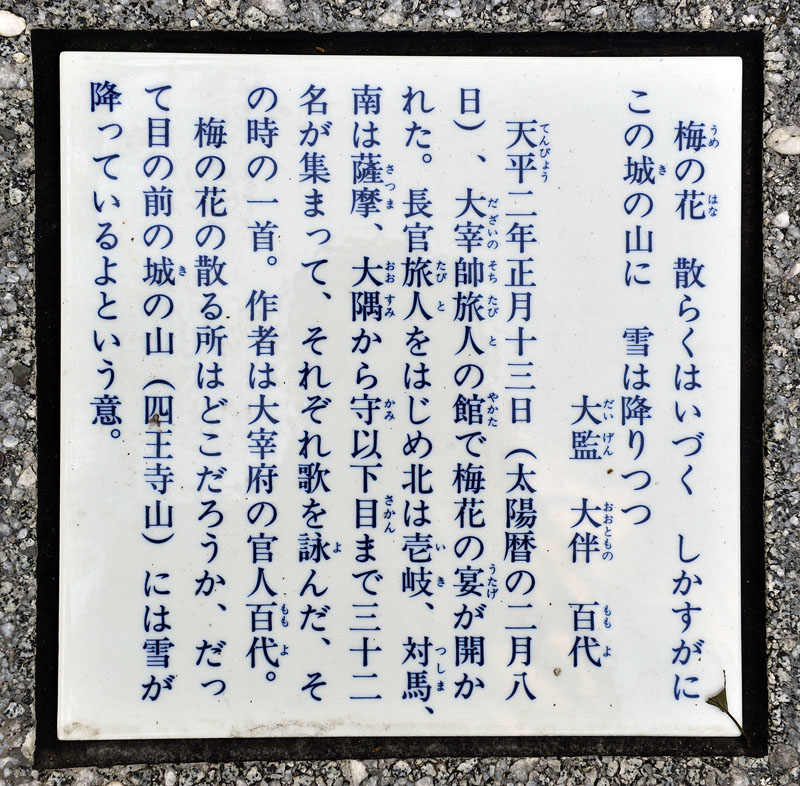 梅の花　散らくはいづく　しかすがに
この城の山に　雪は降りつつ
大監　大伴　百代
天平二年正月十三日（太陽暦の二月八
日）、大宰帥旅人の館で梅花の宴が開か
れた。長官旅人をはじめ北は壱岐、対馬、
南は薩摩、大隅から守以下目まで三十二
名が集まって、それぞれ歌を詠んだ、そ
の時の一首。作者は大宰府の官人百代。
梅の花の散る所はどこだろうか、だっ
て目の前の城の山（四王寺山）には雪が
降っているよという意。